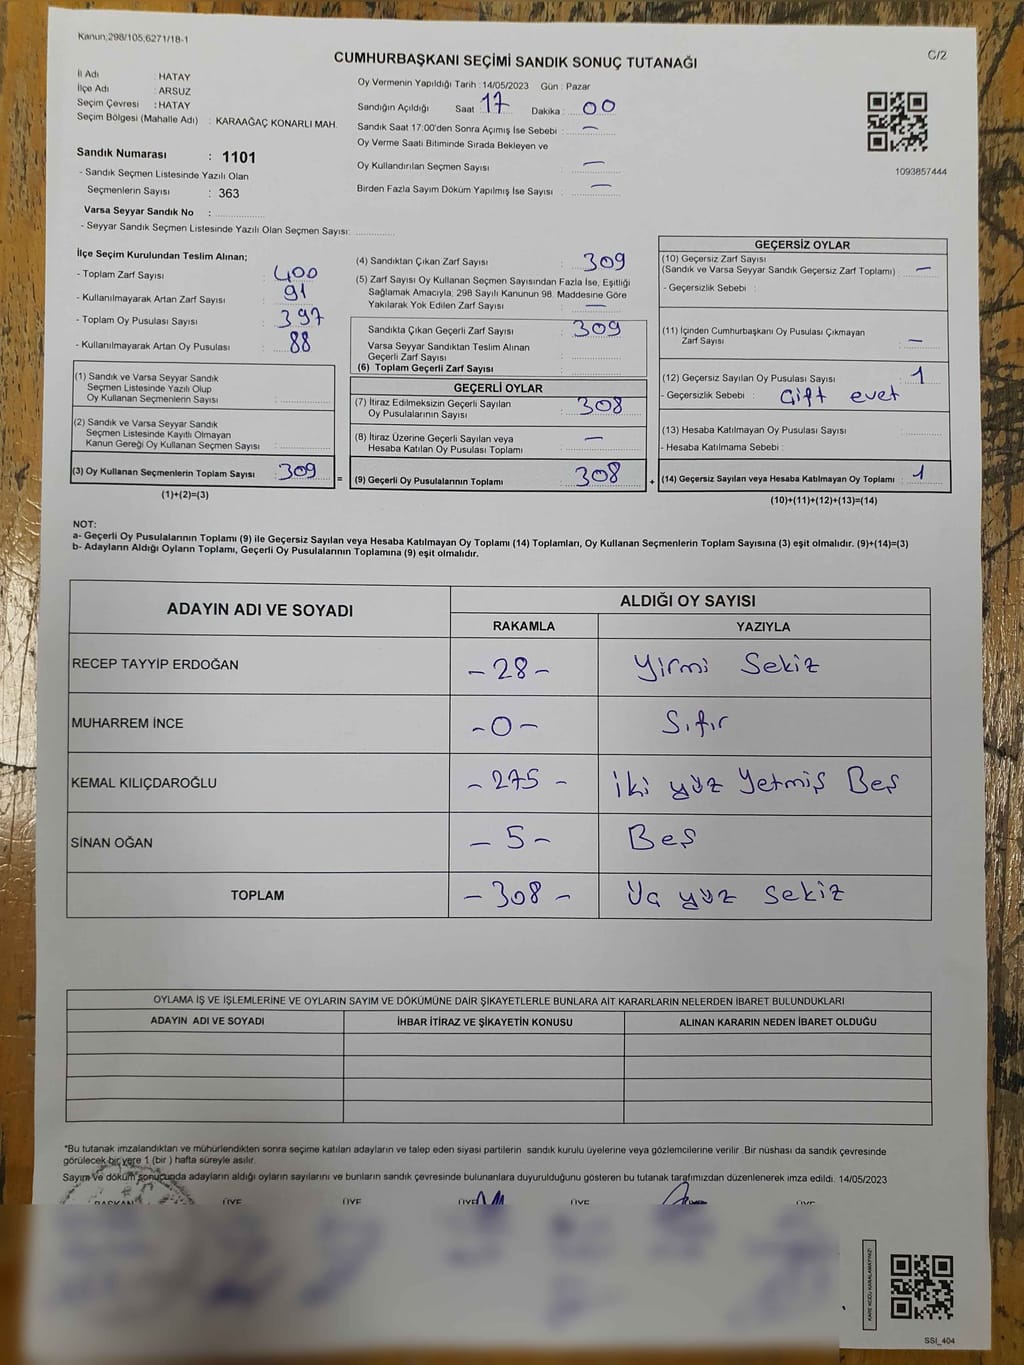 Kanun;298/105,6271/18-1
C/2
CUMHURBAŞKANI SEÇİMİ SANDIK SONUÇ TUTANAĞI
İl Adı : HATAY
İlçe Adı : ARSUZ
Seçim Çevresi : HATAY
Seçim Bölgesi (Mahalle Adı) : KARAAĞAÇ KONARLI MAH.
Sandık Numarası : 1101
- Sandık Seçmen Listesinde Yazılı Olan
Seçmenlerin Sayısı : 363
Varsa Seyyar Sandık No :
- Seyyar Sandık Seçmen Listesinde Yazılı Olan Seçmen Sayısı:
Oy Vermenin Yapıldığı Tarih : 14/05/2023 Gün : Pazar
Sandığın Açıldığı Saat : 17 Dakika : 00
Sandık Saat 17:00'den Sonra Açımış İse Sebebi : —
Oy Verme Saati Bitiminde Sırada Bekleyen ve
Oy Kullandırılan Seçmen Sayısı : —
Birden Fazla Sayım Döküm Yapılmış İse Sayısı : —
1093857444
İlçe Seçim Kurulundan Teslim Alınan;
- Toplam Zarf Sayısı : 400
- Kullanılmayarak Artan Zarf Sayısı : 91
- Toplam Oy Pusulası Sayısı : 397
- Kullanılmayarak Artan Oy Pusulası : 88
(1) Sandık ve Varsa Seyyar Sandık
Seçmen Listesinde Yazılı Olup
Oy Kullanan Seçmenlerin Sayısı :
(2) Sandık ve Varsa Seyyar Sandık
Seçmen Listesinde Kayıtlı Olmayan
Kanun Gereği Oy Kullanan Seçmen Sayısı :
(3) Oy Kullanan Seçmenlerin Toplam Sayısı : 309
(1)+(2)=(3)
=
(4) Sandıktan Çıkan Zarf Sayısı : 309
(5) Zarf Sayısı Oy Kullanan Seçmen Sayısından Fazla İse, Eşitliği
Sağlamak Amacıyla, 298 Sayılı Kanunun 98. Maddesine Göre
Yakılarak Yok Edilen Zarf Sayısı : —
Sandıkta Çıkan Geçerli Zarf Sayısı : 309
Varsa Seyyar Sandıktan Teslim Alınan
Geçerli Zarf Sayısı :
(6) Toplam Geçerli Zarf Sayısı :
GEÇERLİ OYLAR
(7) İtiraz Edilmeksizin Geçerli Sayılan
Oy Pusulalarının Sayısı : 308
(8) İtiraz Üzerine Geçerli Sayılan veya
Hesaba Katılan Oy Pusulası Toplamı : —
(9) Geçerli Oy Pusulalarının Toplamı : 308
+
GEÇERSİZ OYLAR
(10) Geçersiz Zarf Sayısı
(Sandık ve Varsa Seyyar Sandık Geçersiz Zarf Toplamı) : —
- Geçersizlik Sebebi :
(11) İçinden Cumhurbaşkanı Oy Pusulası Çıkmayan
Zarf Sayısı : —
(12) Geçersiz Sayılan Oy Pusulası Sayısı : 1
- Geçersizlik Sebebi : Çift evet
(13) Hesaba Katılmayan Oy Pusulası Sayısı :
- Hesaba Katılmama Sebebi :
(14) Geçersiz Sayılan veya Hesaba Katılmayan Oy Toplamı : 1
(10)+(11)+(12)+(13)=(14)
NOT:
a- Geçerli Oy Pusulalarının Toplamı (9) ile Geçersiz Sayılan veya Hesaba Katılmayan Oy Toplamı (14) Toplamları, Oy Kullanan Seçmenlerin Toplam Sayısına (3) eşit olmalıdır. (9)+(14)=(3)
b- Adayların Aldığı Oyların Toplamı, Geçerli Oy Pusulalarının Toplamına (9) eşit olmalıdır.
ADAYIN ADI VE SOYADI ALDIĞI OY SAYISI
RAKAMLA YAZIYLA
RECEP TAYYİP ERDOĞAN -28- Yirmi Sekiz
MUHARREM İNCE -0- Sıfır
KEMAL KILIÇDAROĞLU -275- İki yüz Yetmiş Beş
SİNAN OĞAN -5- Beş
TOPLAM -308- Üç yüz Sekiz
OYLAMA İŞ VE İŞLEMLERİNE VE OYLARIN SAYIM VE DÖKÜMÜNE DAİR ŞİKAYETLERLE BUNLARA AİT KARARLARIN NELERDEN İBARET BULUNDUKLARI
ADAYIN ADI VE SOYADI İHBAR İTİRAZ VE ŞİKAYETİN KONUSU ALINAN KARARIN NEDEN İBARET OLDUĞU
*Bu tutanak imzalandıktan ve mühürlendikten sonra seçime katılan adayların ve talep eden siyasi partilerin sandık kurulu üyelerine veya gözlemcilerine verilir. Bir nüshası da sandık çevresinde
görülecek bir yere 1 (bir ) hafta süreyle asılır.
Sayım ve döküm sonucunda adayların aldığı oyların sayılarını ve bunların sandık çevresinde bulunanlara duyurulduğunu gösteren bu tutanak tarafımızdan düzenlenerek imza edildi. 14/05/2023
BAŞKAN ÜYE ÜYE ÜYE ÜYE ÜYE
KARE KODU KARALAMAYINIZ!
SSI_404